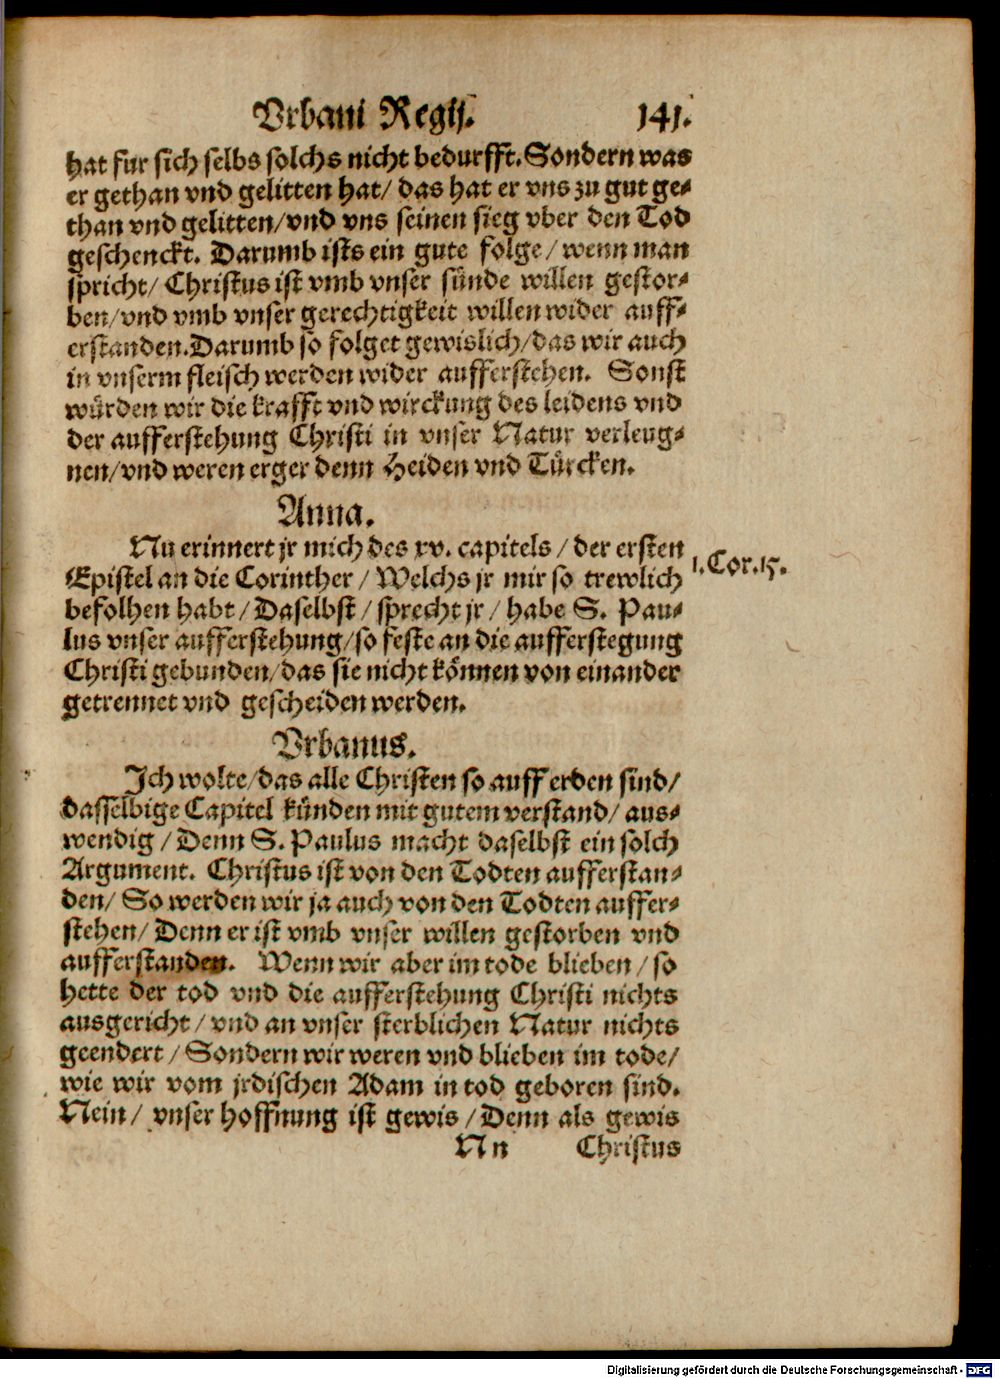 Vrbani Regij. 141.
hat fur sich selbs solchs nicht bedurfft. Sondern was
er gethan vnd gelitten hat/ das hat er vns zu gut ge-
than vnd gelitten/vnd vns seinen sieg vber den Tod
geschenckt. Darumb ists ein gute folge/ wenn man
spricht/ Christus ist vmb vnser sünde willen gestor-
ben/vnd vmb vnser gerechtigkeit willen wider auff-
erstanden. Darumb so folget gewislich/das wir auch
in vnserm fleisch werden wider aufferstehen. Sonst
würden wir die krafft vnd wirckung des leidens vnd
der aufferstehung Christi in vnser Natur verleug-
nen/vnd weren erger denn Heiden vnd Türcken.
Anna.
Nu erinnert jr mich des xv. capitels/ der ersten
Epistel an die Corinther/ Welchs jr mir so trewlich
1. Cor. 15.
befolhen habt/ Daselbst/ sprecht jr/ habe S. Pau-
lus vnser aufferstehung/so feste an die aufferstegung
Christi gebunden/das sie nicht können von einander
getrennet vnd gescheiden werden.
Vrbanus.
Ich wolte/das alle Christen so auff erden sind/
dasselbige Capitel künden mit gutem verstand/ aus-
wendig/ Denn S. Paulus macht daselbst ein solch
Argument. Christus ist von den Todten aufferstan-
den/ So werden wir ja auch von den Todten auffer-
stehen/ Denn er ist vmb vnser willen gestorben vnd
aufferstanden. Wenn wir aber im tode blieben/ so
hette der tod vnd die aufferstehung Christi nichts
ausgericht/ vnd an vnser sterblichen Natur nichts
geendert/ Sondern wir weren vnd blieben im tode/
wie wir vom jrdischen Adam in tod geboren sind.
Nein/ vnser hoffnung ist gewis/ Denn als gewis
Nn Christus
Digitalisierung gefördert durch die Deutsche Forschungsgemeinschaft - DFG